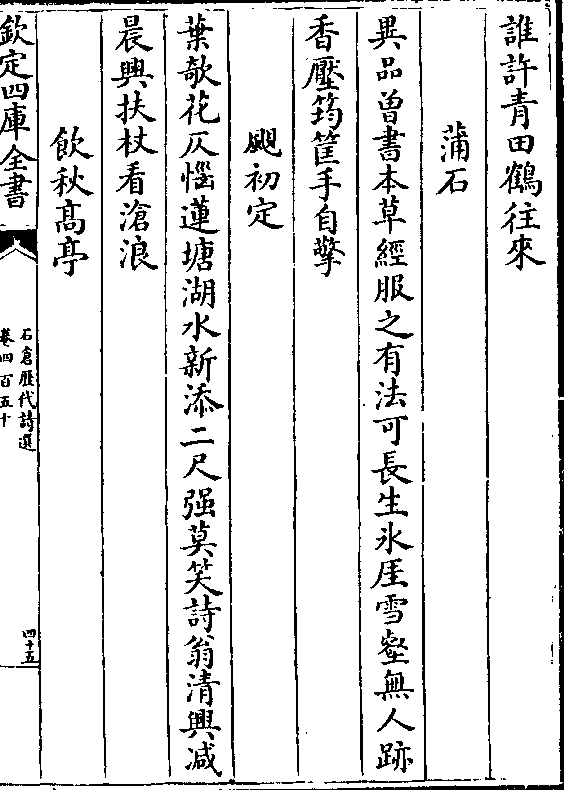 誰許青田鶴往來
蒲石
異品曾書本草經服之有法可長生氷厓雪壑無人跡
香壓筠筐手自擎
颶初定
葉欹花仄惱蓮塘湖水新添二尺强莫笑詩翁清興减
晨興扶杖看滄浪
飲秋髙亭
欽定四庫全書
石倉歷代詩選
卷四百五十
四十五